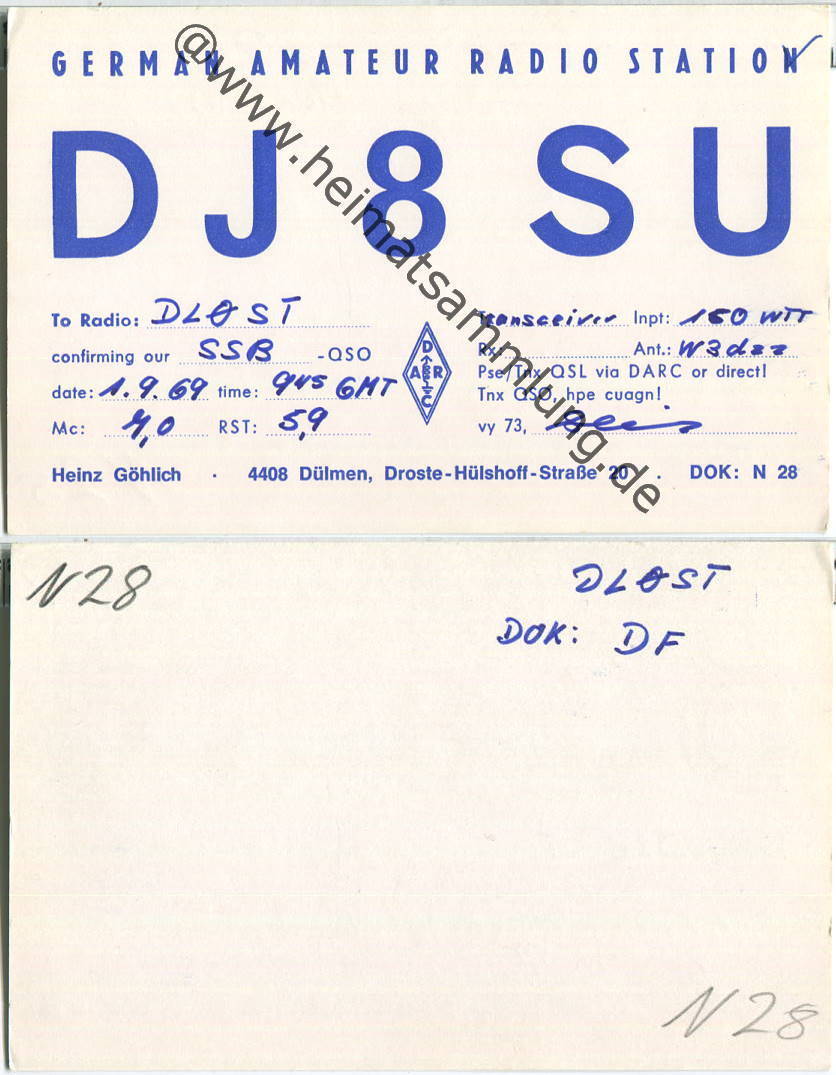 GERMAN AMATEUR RADIO STATION
DJ8SU
To Radio: DLØST
confirming our SSB -QSO
date: 1.9.69 time: 945 GMT
Mc: 7,0 RST: 5,9
DARC
Transceiver Inpt: 150 WTT
Rx Ant.: W3dzz
Pse/Tnx QSL via DARC or direct!
Tnx QSO, hpe cuagn!
vy 73,
Heinz Göhlich · 4408 Dülmen, Droste-Hülshoff-Straße 20 . DOK: N 28
@www.heimatsammlung.de
N28
DLØST
DOK: DF
N28